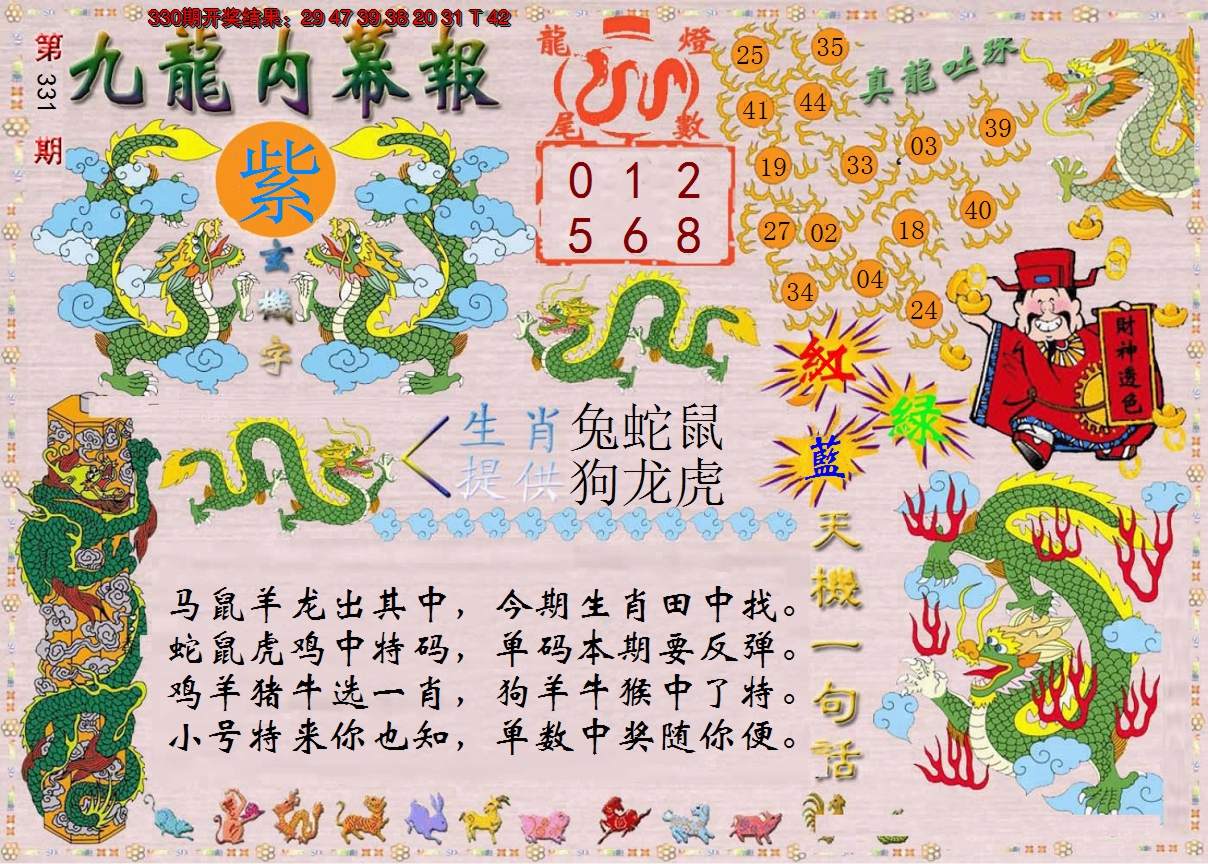 330期开奖结果：29 47 39 38 20 31 T 42
第331期
九龍内幕報
紫
玄機字
龍燈尾數
0 1 2
5 6 8
真龍吐珠
25 35
41 44
19 33 03 39
27 02 18 40
34 04 24
財神透色
紅
綠
藍
生肖 兔蛇鼠
提供 狗龙虎
马鼠羊龙出其中，今期生肖田中找。
蛇鼠虎鸡中特码，单码本期要反弹。
鸡羊猪牛选一肖，狗羊牛猴中了特。
小号特来你也知，单数中奖随你便。
天機一句話